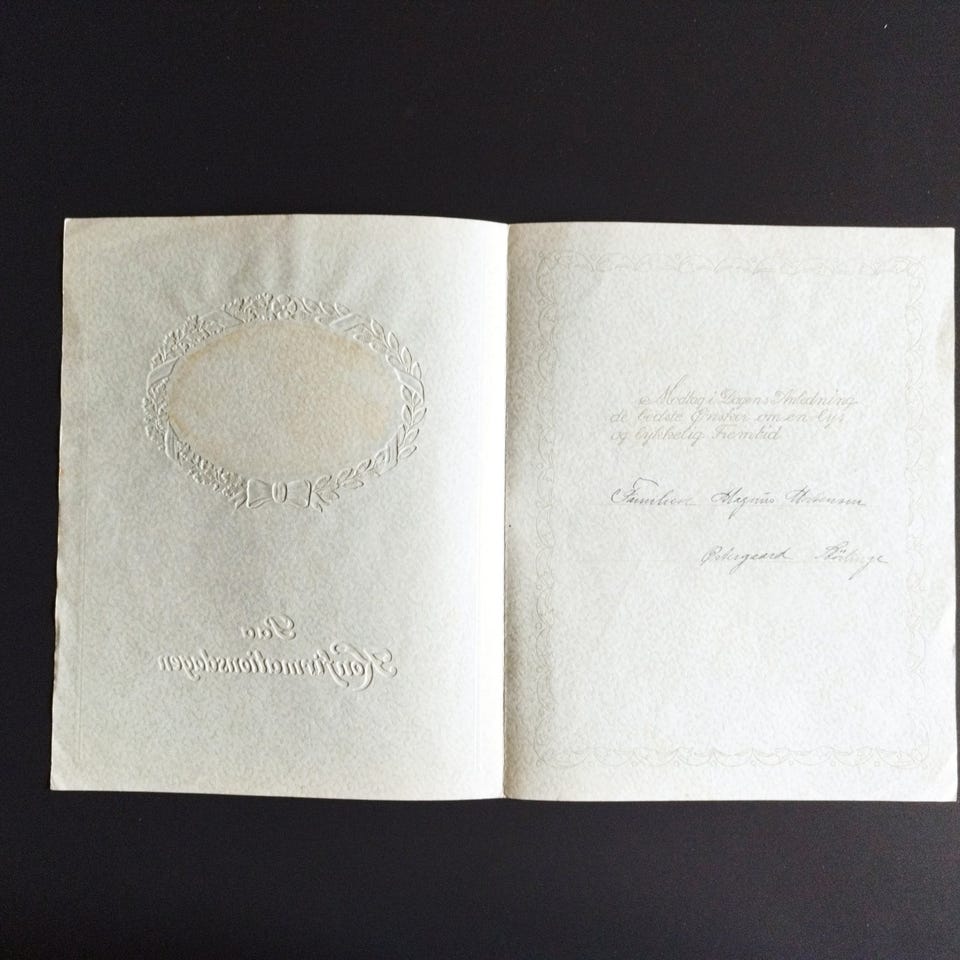 Paa
Konfirmationsdagen
Modtag i Dagens Anledning
de bedste Ønsker om en lys
og lykkelig Fremtid
Familien Magnus
Østergaard